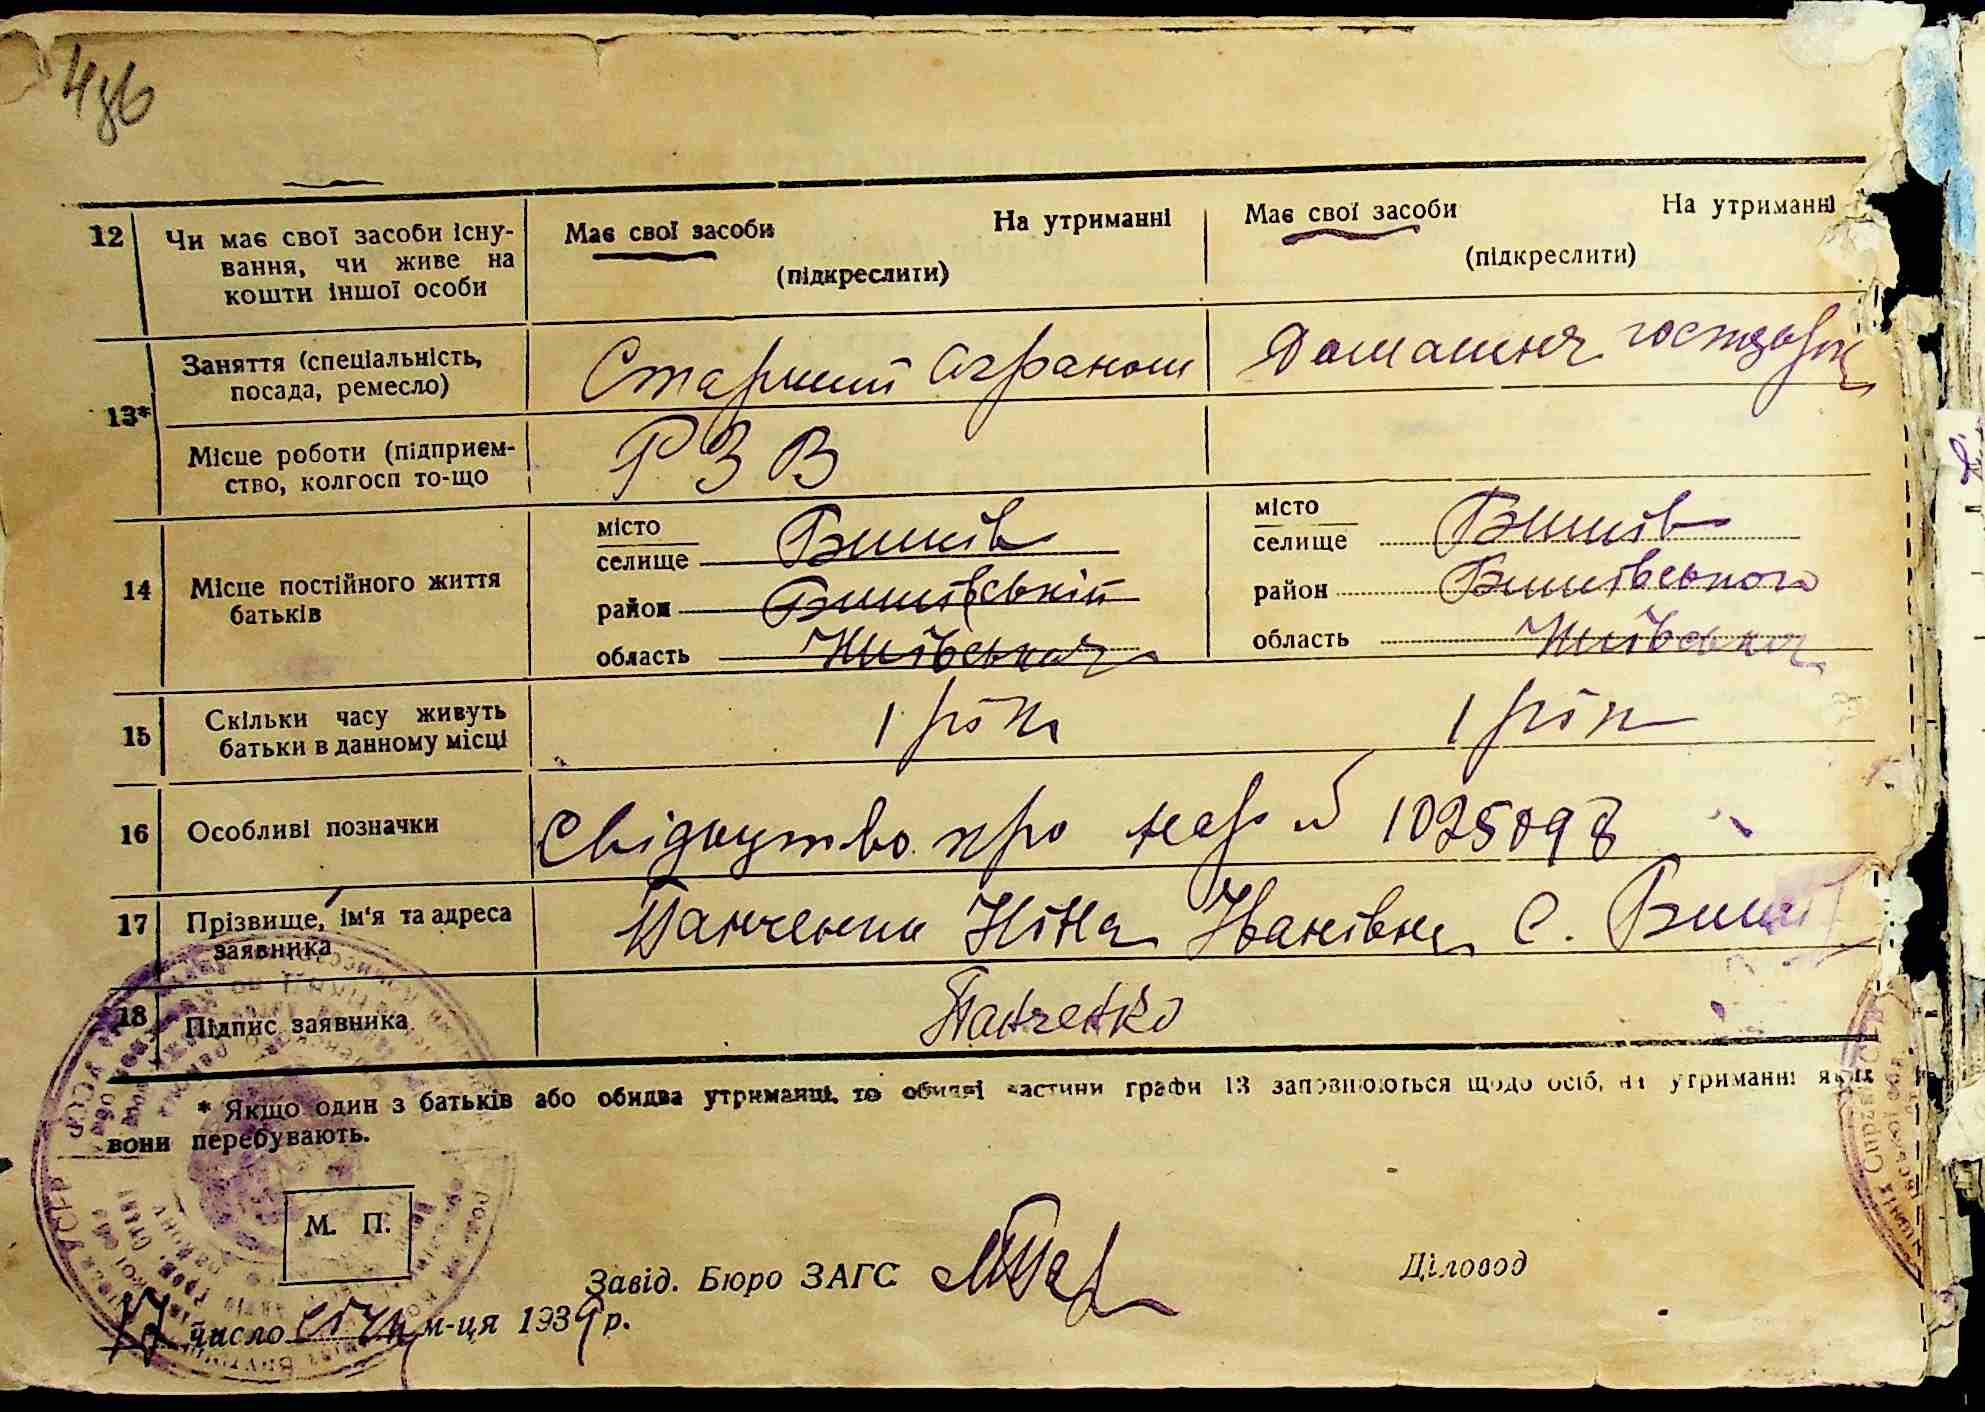 12 Чи має свої засоби існу-
вання, чи живе на
кошти іншої особи
Має свої засоби На утриманні
(підкреслити)
Має свої засоби На утриманні
(підкреслити)
13*
Заняття (спеціальність,
посада, ремесло)
Старший Аграном
Домашня господарк
Місце роботи (підприєм-
ство, колгосп то-що
РЗВ
14 Місце постійного життя
батьків
місто
селище Бишів
район Бишівський
область Київська
місто
селище Бишів
район Бишівського
область Київська
15 Скільки часу живуть
батьки в данному місці
1 рік
1 рік
16 Особливі позначки
Свідоцтво про нар № 1025098
17 Прізвище, ім'я та адреса
заявника
Панченко Ніна Іванівна с. Бишів
18 Підпис заявника
Панченко
* Якщо один з батьків або обидва утриманці, то обидві частини графи 13 заповнюються щодо осіб, на утриманні яких
вони перебувають.
М. П.
Завід. Бюро ЗАГС
Діловод
17 число січня м-ця 1939 р.